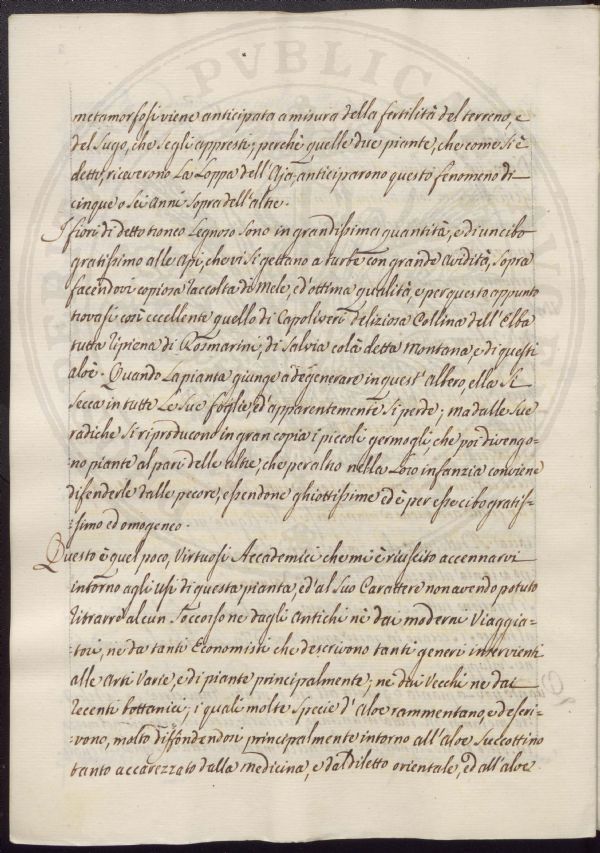 metamorfosi viene anticipata a misura della fertilità del terreno, e
del Sugo, che se gli appresti; perchè quelle due piante, che come si è
dett., riceverono La Loppa dell'Aja, anticiparono questo fenomeno di
cinque o Sei Anni Sopra dell'altre.
I fiori di detto tronco Legnoso Sono in grandissima quantità, e di un cibo
gratissimo alle Api, che vi Si gettano a turbe con grande avidità, Sopra
facendovi copiosa raccolta di Mele, ed'ottima qualità, e per questo appunto
trovasi così eccellente quello di Capoliveri deliziosa Collina dell'Elba
tutta ripiena di Rosmarini, di Salvia colà detta Montana, e di questi
aloè. Quando La pianta giunge a degenerare in quest'Albero, ella Si
Secca in tutte Le Sue foglie, ed'apparentemente Si perde; ma dalle Sue
radiche Si riproducono in gran copia i piccoli germogli, che poi divengo-
-no piante al pari delle altre, che peraltro nella Loro infanzia conviene
difenderle dalle pecore, essendone ghiottissime ed è per esse cibo gratis-
-simo ed omogeneo.
Questo è quel poco, Virtuosi Accademici che mi è riuscito accennarvi
intorno agli usi di questa pianta, ed'al Suo Carattere non avendo potuto
ritrarre alcun Soccorso ne dagli Antichi nè dai moderni Viaggia-
-tori, ne da tanti Economisti che descrivono tanti generi intervienti
alle Arti Varie, e di piante principalmente; ne dai Vecchi ne dai
recenti bottanici; i quali molte Specie d'Aloe rammentano, e descri-
-vono, molto diffondendosi principalmente intorno all'aloe Succottino
tanto accarezzato dalla medicina, e dal Diletto orientale, ed all'aloe
PVBLICA